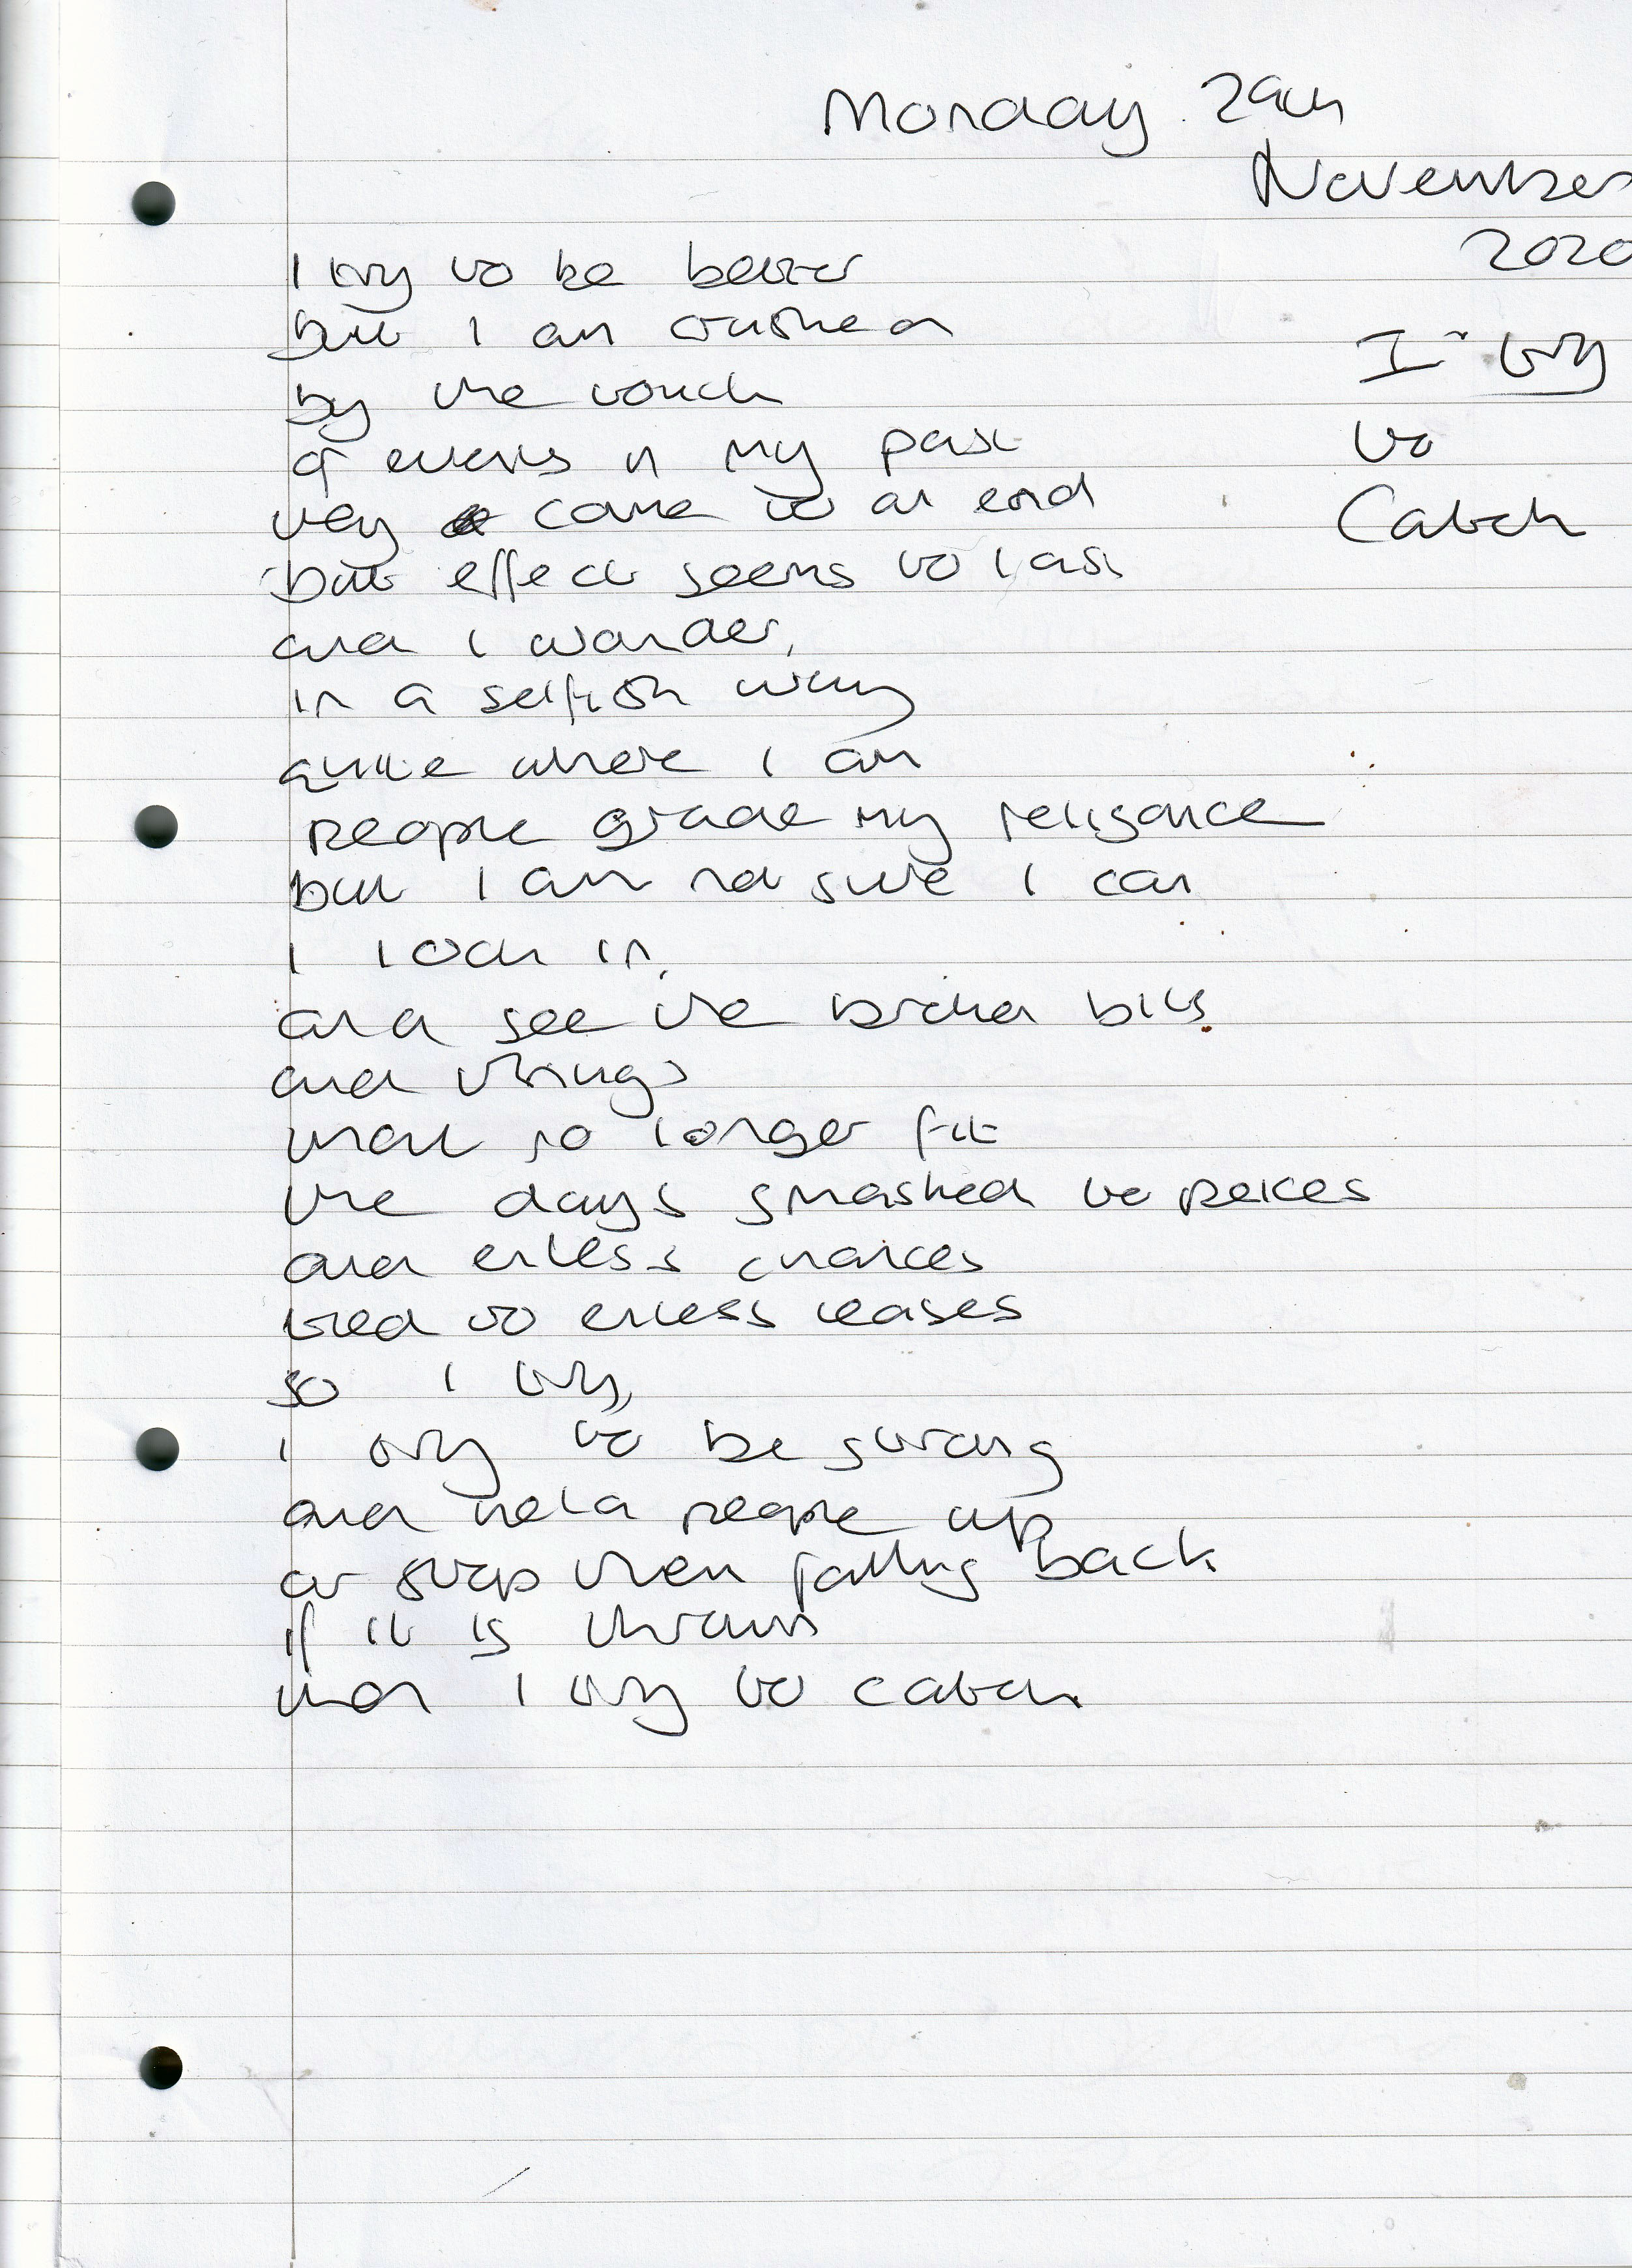 Monday 29th
November
2020
I try
to
Catch
I try to be better
but I am crushed
by the touch
of events in my past
they come to an end
but effect seems to last
and I wonder,
in a selfish way
quite where I am
people grade my
but I am not sure I can
I look in,
and see the broken bits
and things
that no longer fit
the days smashed to peices
and chances
tied to
so I try,
I try to be strong
and held people up
or stop them falling back
if it is thrown
then I try to catch.